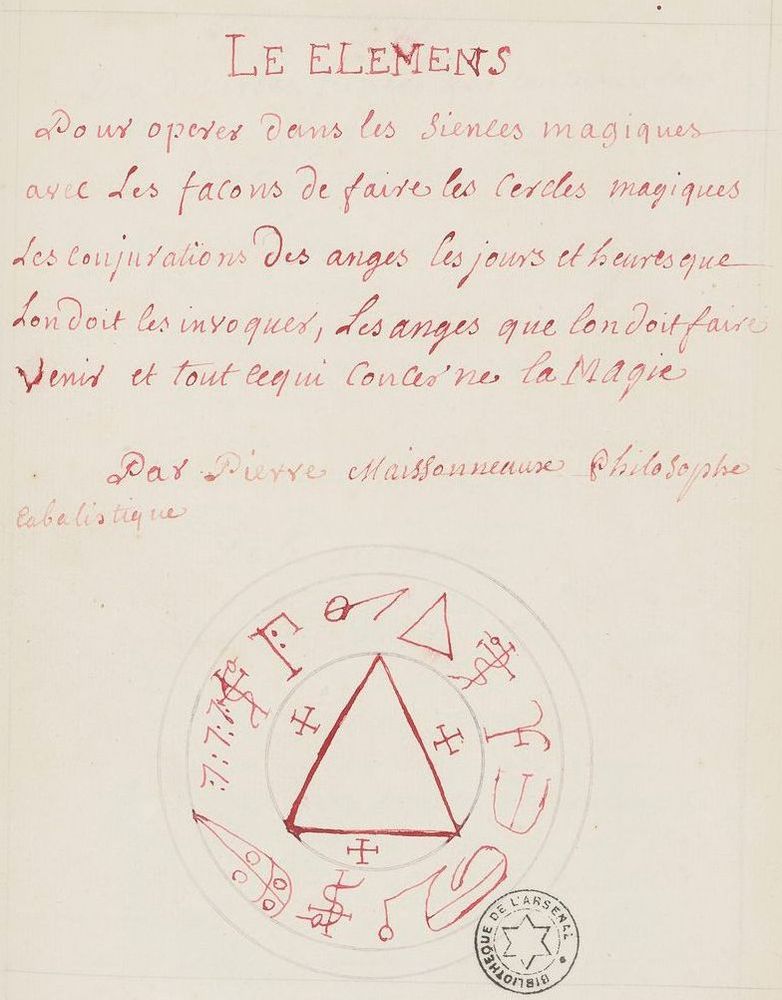 LE ELEMENS
Pour operer dans les siences magiques
avec Les facons de faire les cercles magiques
Les conjurations Des anges les jours et heures que
Lon doit les invoquer, Les anges que lon doit faire
Venir et tout cequi concerne la MAgie
Par Pierre Maissonneaux Philosophe
Cabalistique
BIBLIOTHÈQUE DE L'ARSENAL